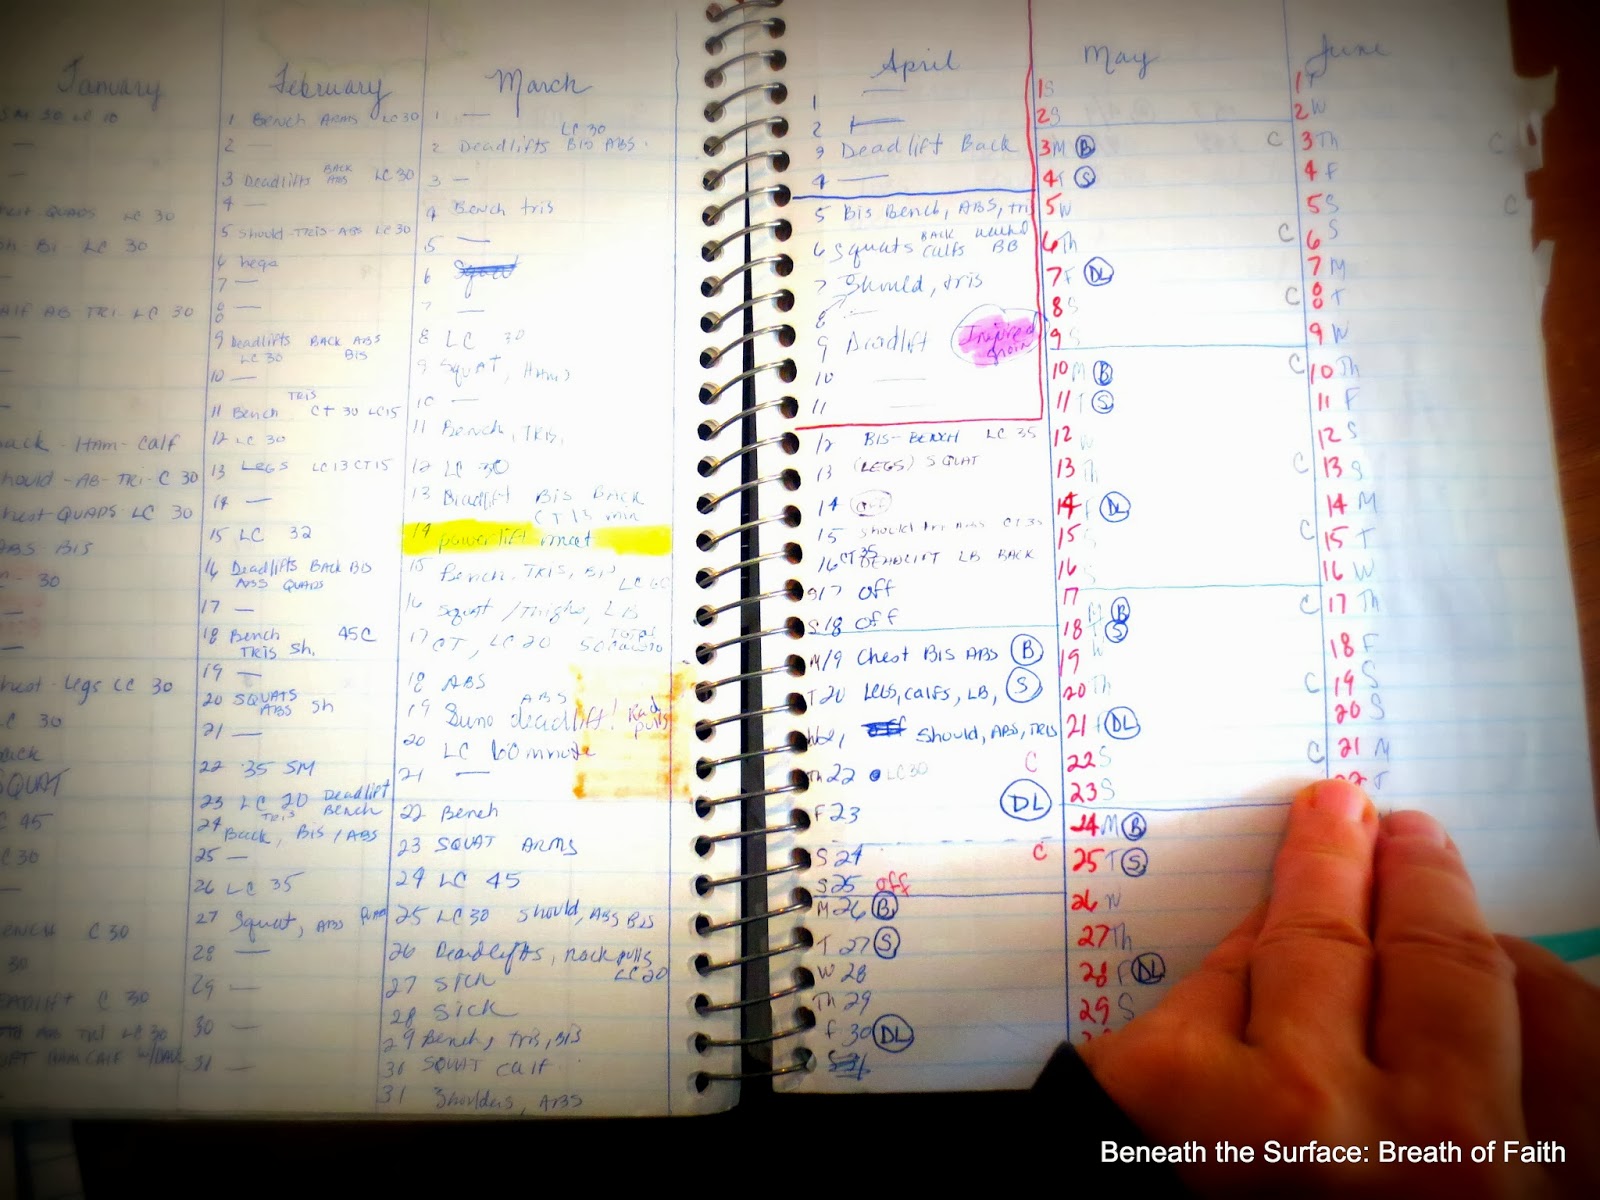 January
LC 10
QUADS LC 30
Bi - LC 30
AB TRI - LC 30
HAM - Calf
AB - TRI - C 30
QUADS - LC 30
ABS BIS
30
Legs LC 30
LC 30
SQUAT
C 45
C 30
C 30
30
C 30
AB TRI LC 30
HAM CALF
February
1 Bench ARMS LC 30
2 —
3 Deadlifts BACK ABS LC 30
4 —
5 Should-TRIS-ABS LC 30
6 Legs
7 —
8
9 Deadlifts BACK ABS
LC 30 BIS
10 —
TRIS
11 Bench CT 30 LC 15
12 LC 30
13 LEGS LC 13 CT 15
14 —
15 LC 32
16 Deadlifts BACK BIS
ABS QUADS
17 —
18 Bench 45 C
TRIS Sh.
19 —
20 SQUATS
ABS Sh
21 —
22 35 SM
23 LC 20 Deadlift
Tris Bench
24 Back, Bis / ABS
25 —
26 LC 35
27 Squat, ABS
28 —
29 —
30 —
31 —
March
1 —
LC 30
2 Deadlifts BIS ABS.
3 —
4 Bench tris
5 —
6
7 —
8 LC 30
9 SQUAT, HAMS
10 —
11 Bench, TRIS,
12 LC 30
13 Deadlift Bis Back
CT 13 min
14 powerlift meet
15 Bench, TRIS, BIS
16 Squat / Thighs, LB
17 CT, LC 20 50 Total Cardio
18 ABS
ABS
19 Sumo deadlift! Rack pulls
20 LC 60 minute
21 —
22 Bench
23 SQUAT ARMS
24 LC 45
25 LC 30 Should, ABS BIS
26 Deadlifts, rack pulls
LC 20
27 Sick
28 Sick
29 Bench, tris, Bis
30 SQUAT calf
31 Shoulders, ABS
April
1 —
2 —
3 Deadlift Back
4 —
5 Bis Bench, ABS, tris
6 Squats BACK calfs BB
7 Should, tris
8 —
9 Deadlift Injured groin
10 —
11 —
12 BIS-BENCH LC 35
13 (LEGS) SQUAT
14 Off
15 Should CT 30
16 CT 35 DEADLIFT LB BACK
S 17 Off
S 18 Off
M 19 Chest BIS ABS B
T 20 LEGS, calfs, LB, S
W 21, Should, ABS, TRIS
Th 22 LC 30 C
F 23 DL
S 24 C
S 25 Off
M 26 B
T 27 S
W 28
Th 29
F 30 DL
May
1 S
2 S
3 M B C
4 T S
5 W
6 Th C
7 F DL
8 S C
9 S
10 M B C
11 T S
12 W
13 Th C
14 F DL
15 S C
16 S
17 M B C
18 T S
19 W
20 Th C
21 F DL
22 S C
23 S
24 M B
25 T S
26 W
27 Th
28 F DL
29 S
June
1 T
2 W
3 Th C
4 F
5 S C
6 S
7 M
8 T
9 W
10 Th
11 F
12 S
13 S
14 M
15 T
16 W
17 Th
18 F
19 S
20 S
21 M
22 T
Beneath the Surface: Breath of Faith